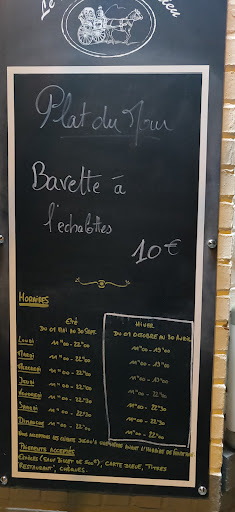 Plat du Jour
Bavette à
l'echalottes
10€
HORAIRES
ÉTÉ
DU 01 MAI AU 30 SEPT.
HIVER
DU 01 OCTOBRE AU 30 AVRIL
LUNDI 11H00 - 22H00 11H00 - 15H00
MARDI 11H00 - 22H00 11H00 - 15H00
MERCREDI 11H00 - 22H00 11H00 - 15H00
JEUDI 11H00 - 22H00 11H00 - 22H00
VENDREDI 11H00 - 22H30 11H00 - 22H30
SAMEDI 11H00 - 22H30 11H00 - 22H30
DIMANCHE 11H00 - 22H00 11H00 - 22H00
PAIEMENTS ACCEPTÉS
ESPÈCES (SAUF BILLET DE 500€), CARTE BLEUE, TITRES
RESTAURANT, CHÈQUES.